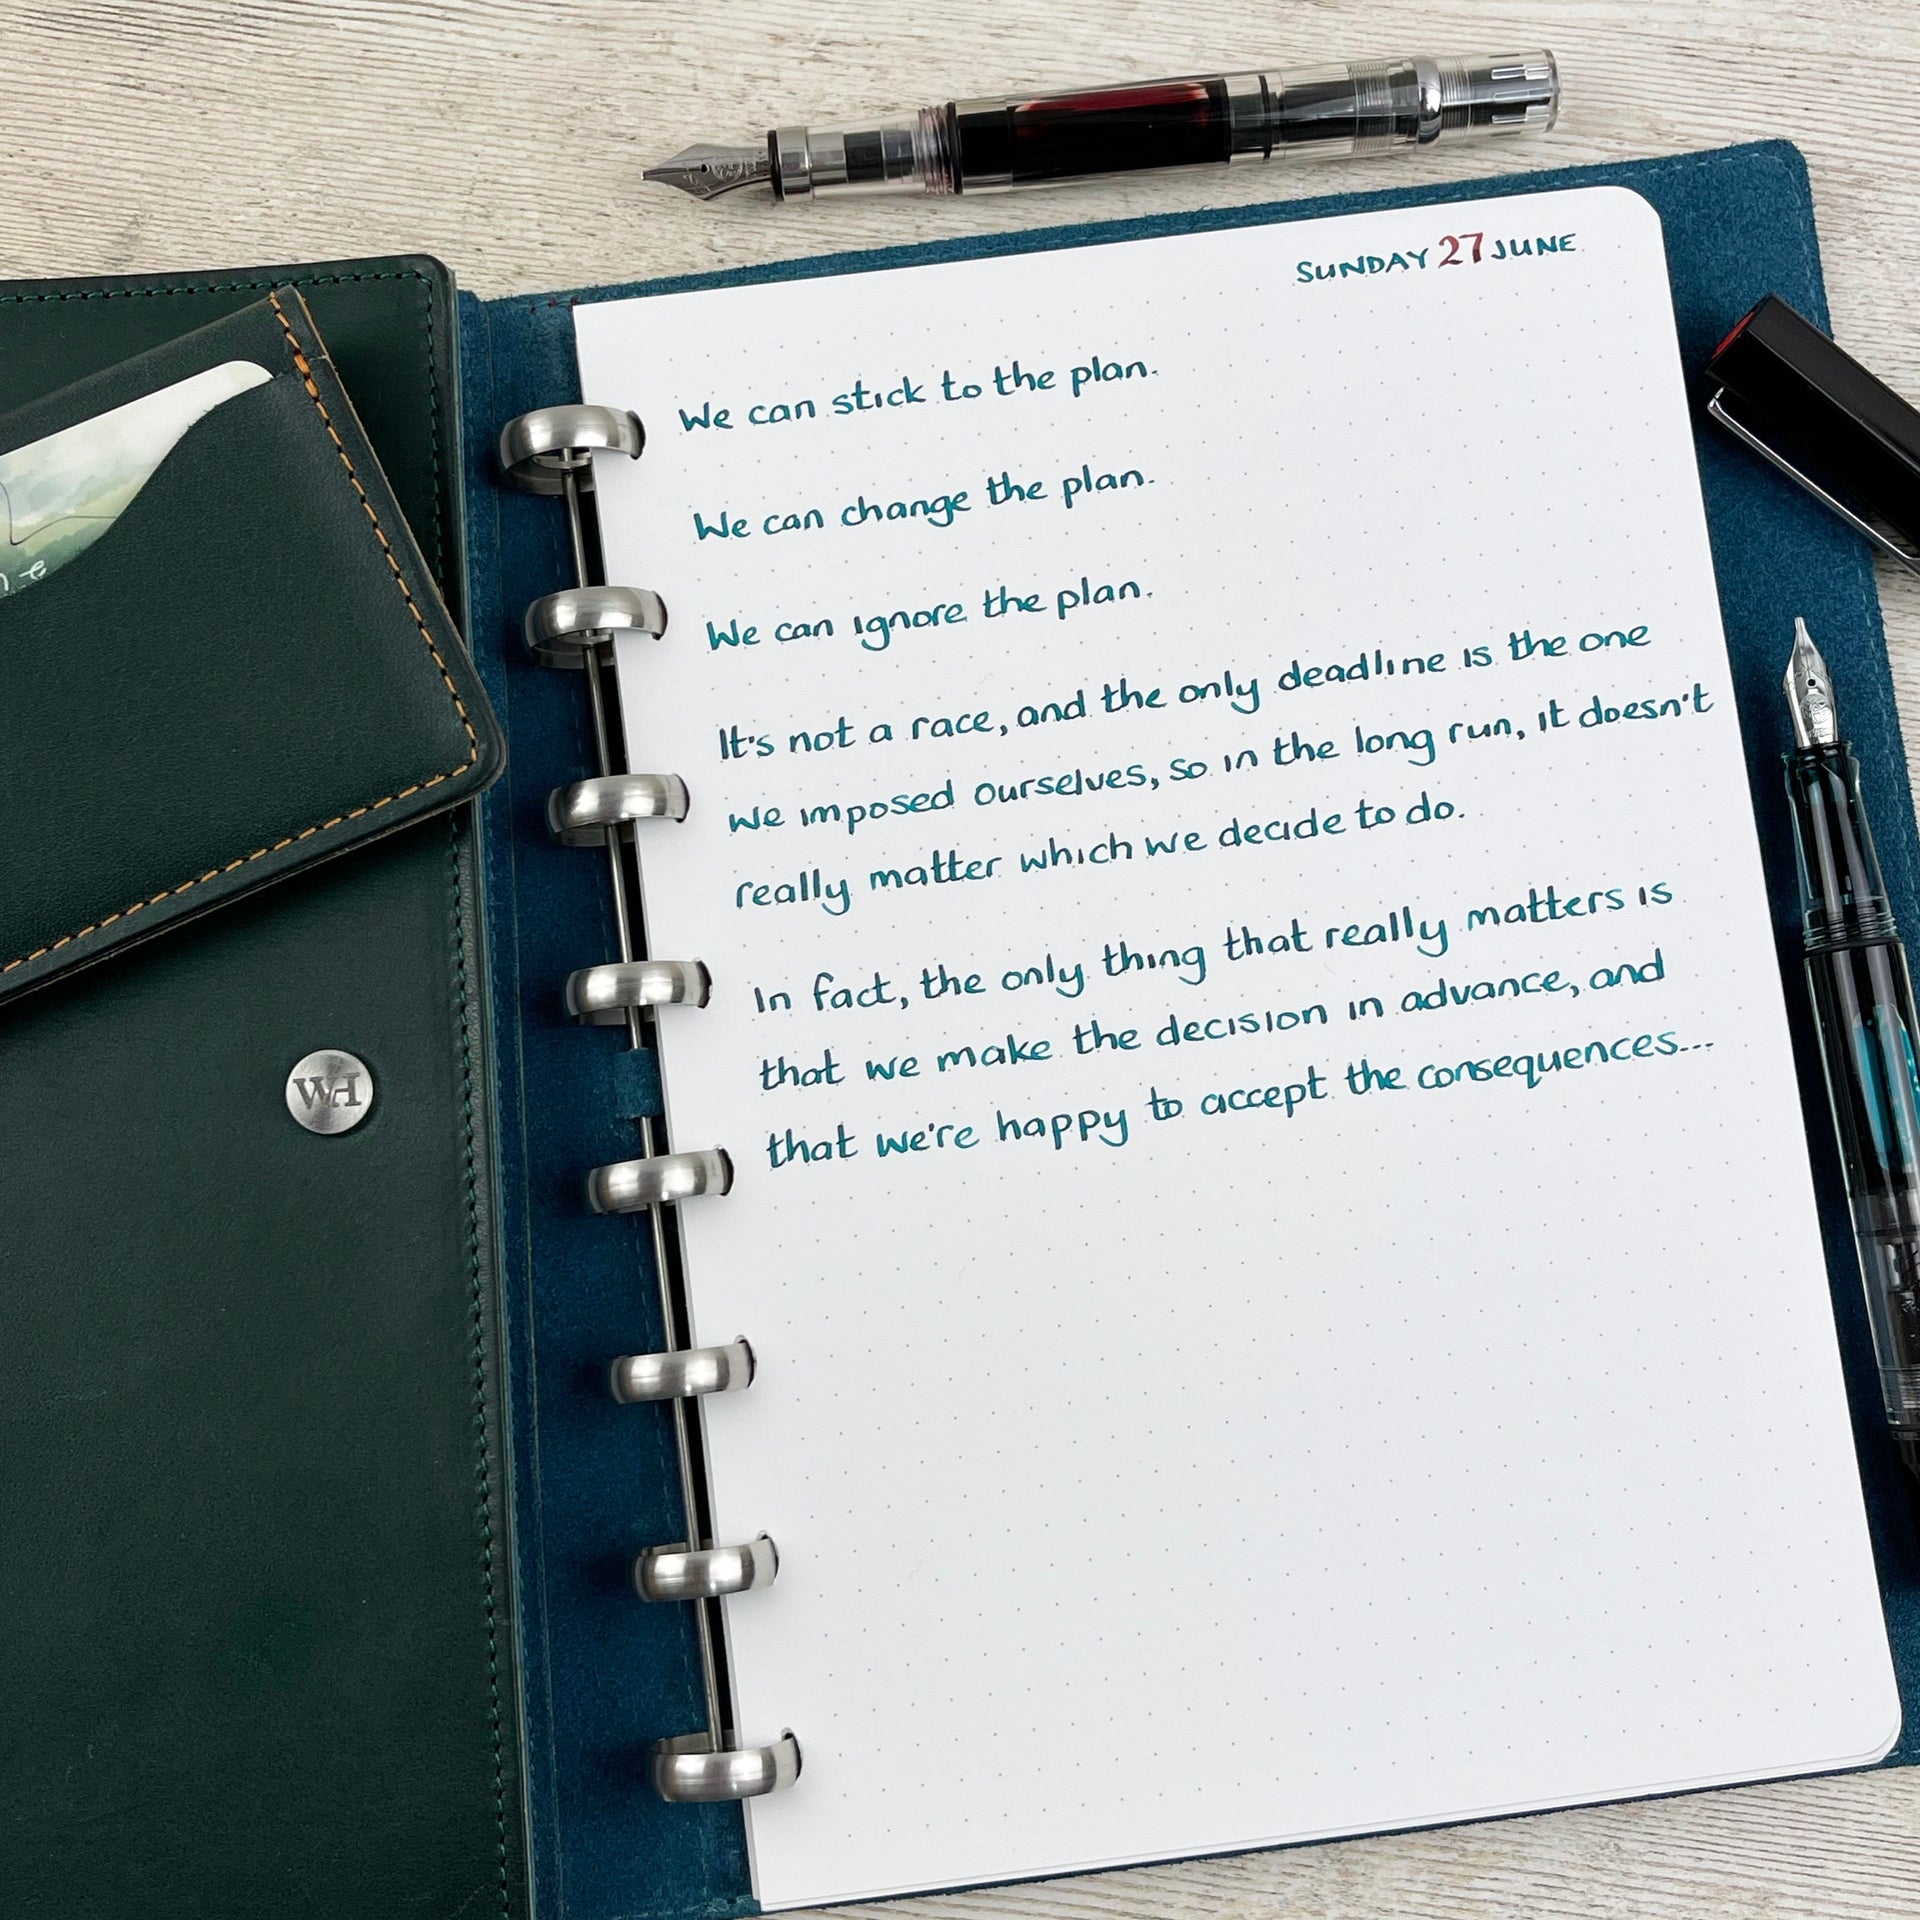 SUNDAY 27 JUNE
We can stick to the plan.
We can change the plan.
We can ignore the plan.
It's not a race, and the only deadline is the one
we imposed ourselves, so in the long run, it doesn't
really matter which we decide to do.
In fact, the only thing that really matters is
that we make the decision in advance, and
that we're happy to accept the consequences...
WH